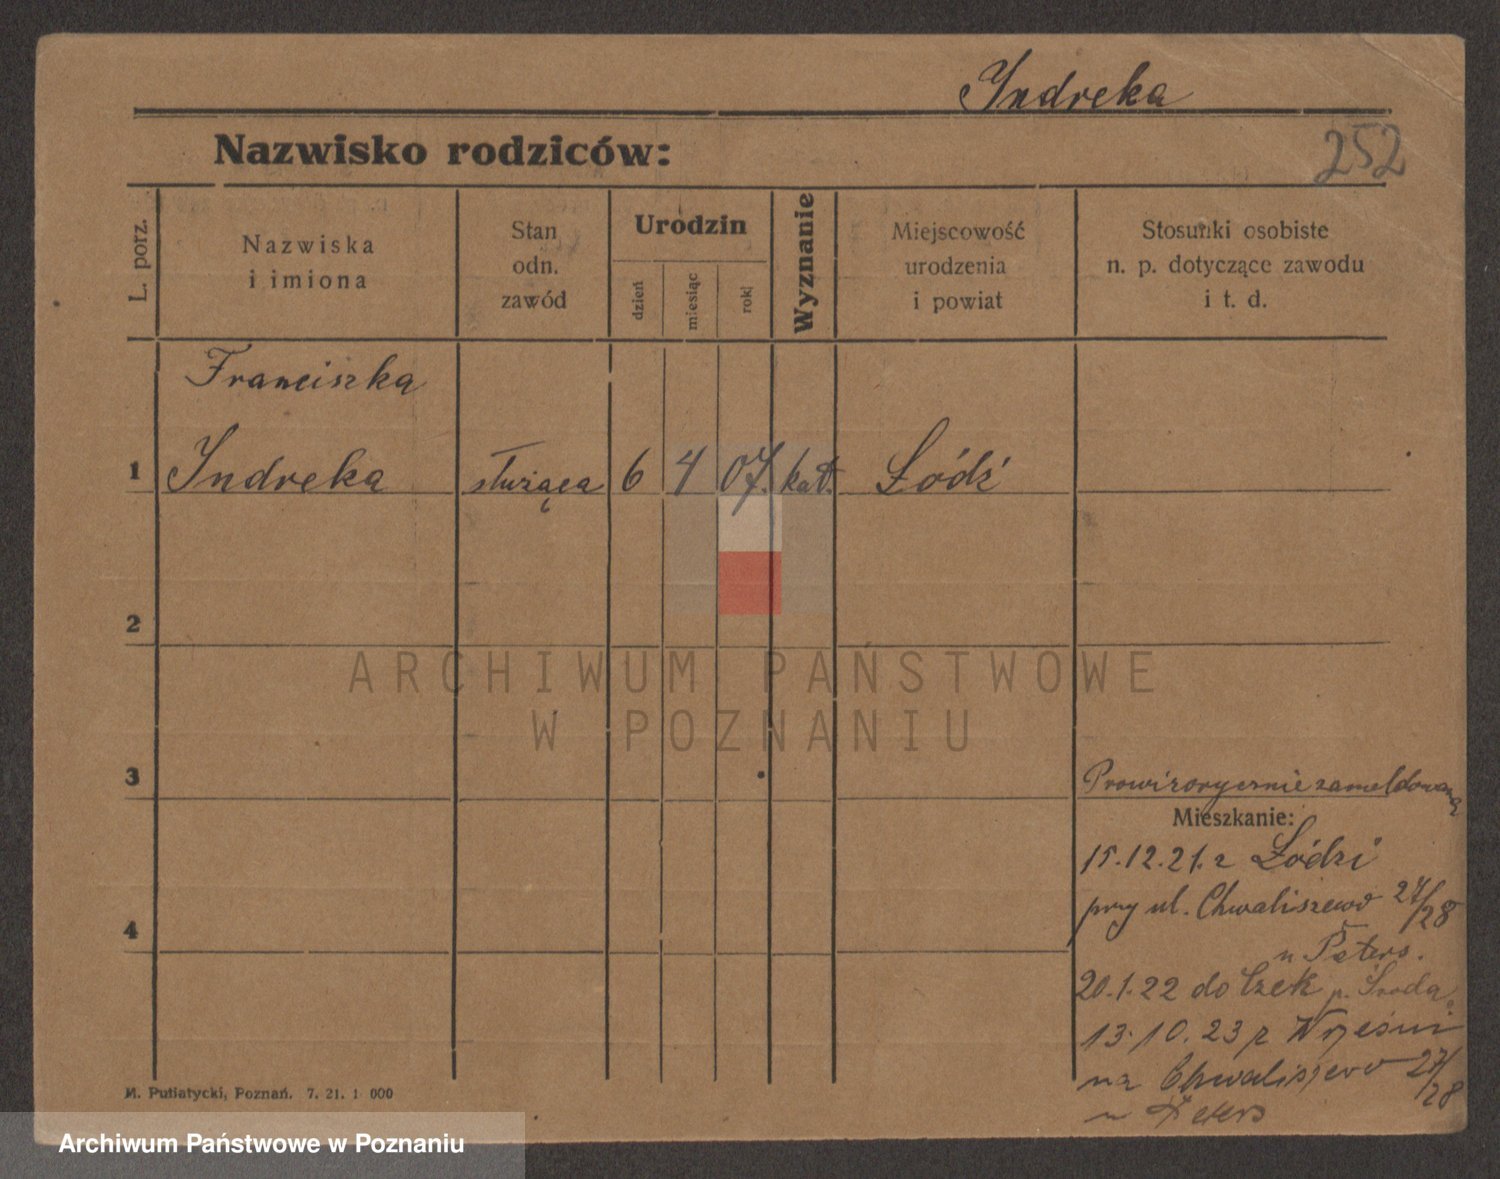 Indreka
252
Nazwisko rodziców:
L. porz.
Nazwiska
i imiona
Stan
odn.
zawód
Urodzin
dzień
miesiąc
rok
Wyznanie
Miejscowość
urodzenia
i powiat
Stosunki osobiste
n. p. dotyczące zawodu
i t. d.
Franciszka
1 Indreka służąca 6 4 07. kat. Łódź
2
ARCHIWUM PAŃSTWOWE
W POZNANIU
3
Prowizorycznie zameldowana
Mieszkanie:
15.12.21. z Łodzi
przy ul. Chwaliszewo 27/28
4
u Peters.
20.1.22 do p. Środa
13.10.23 z Wrześni
na Chwaliszewo 27/28
u Peters
M. Putiatycki, Poznań. 7. 21. 1 000
Archiwum Państwowe w Poznaniu